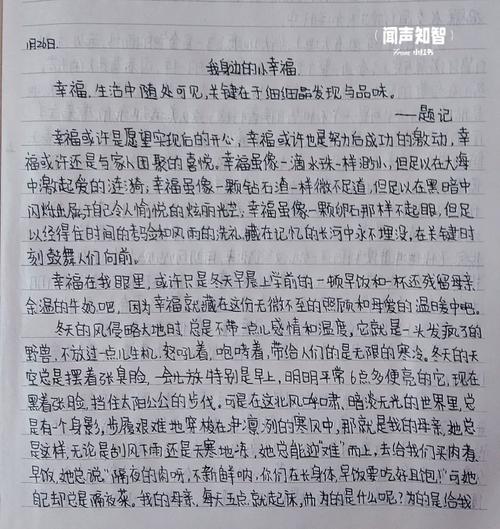 闻声知智
小红书
1月26日.
我身边的小幸福.
幸福,生活中随处可见,关键在于细细品发现与品味。
——题记
幸福或许是愿望实现后的开心,幸福或许也是努力后成功的激动,幸
福或许还是与家人团聚的喜悦。幸福虽像一滴水珠一样渺小,但足以在大海
中激起爱的涟漪;幸福虽像一颗钻石渣一样微不足道,但足以在黑暗中
闪烁出属于自己令人愉悦的炫丽光芒;幸福虽像一颗卵石那样不起眼,但足
以经得住时间的考验和风雨的洗礼,藏在记忆的长河中永不埋没,在关键时
刻鼓舞人们向前。
幸福在我眼里,或许只是冬天早晨上学前的一顿早饭和一杯还残留母亲
余温的牛奶吧,因为幸福就藏在这份无微不至的照顾和母爱的温暖中吧。
冬天的风侵略大地时,总是不带一点儿感情和温度。它就是一头发疯了的
野兽,不放过一点儿生机,怒吼着,咆哮着,带给人们的是无限的寒冷。冬天的天
空总是摆着张臭脸,一会儿放特别是早上,明明平常6点多便亮的它,现在
黑着张脸,挡住太阳公公的步伐。可是在这北风呼肃,暗淡无光的世界里,总
是有个身影,步履艰难地穿梭在尹凛冽的寒风中,那就是我的母亲,她总
是这样,无论是刮风下雨还是天寒地冻,她总能迎“难”而上,去给我们买肉着
早饭,她总说“隔夜的肉呀,不新鲜呐,你们在长身体,早饭要吃好且饱!”可她
自己却总是隔夜菜。我的母亲,每天五点就起床,而为的是什么呢?为的是给我